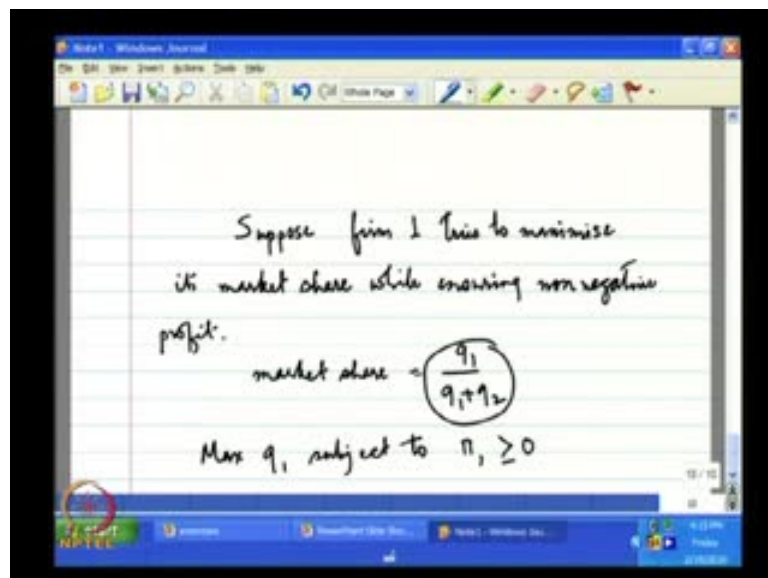 Note1 - Windows Journal
File Edit View Insert Actions Tools Help
Whole Page
Suppose firm 1 tries to maximise
its market share while ensuring non negative
profit.
market share = q₁ / (q₁+q₂)
Max q₁ subject to π₁ ≥ 0
10 / 10
start
Note1 - Windows Jou...
NPTEL
Friday